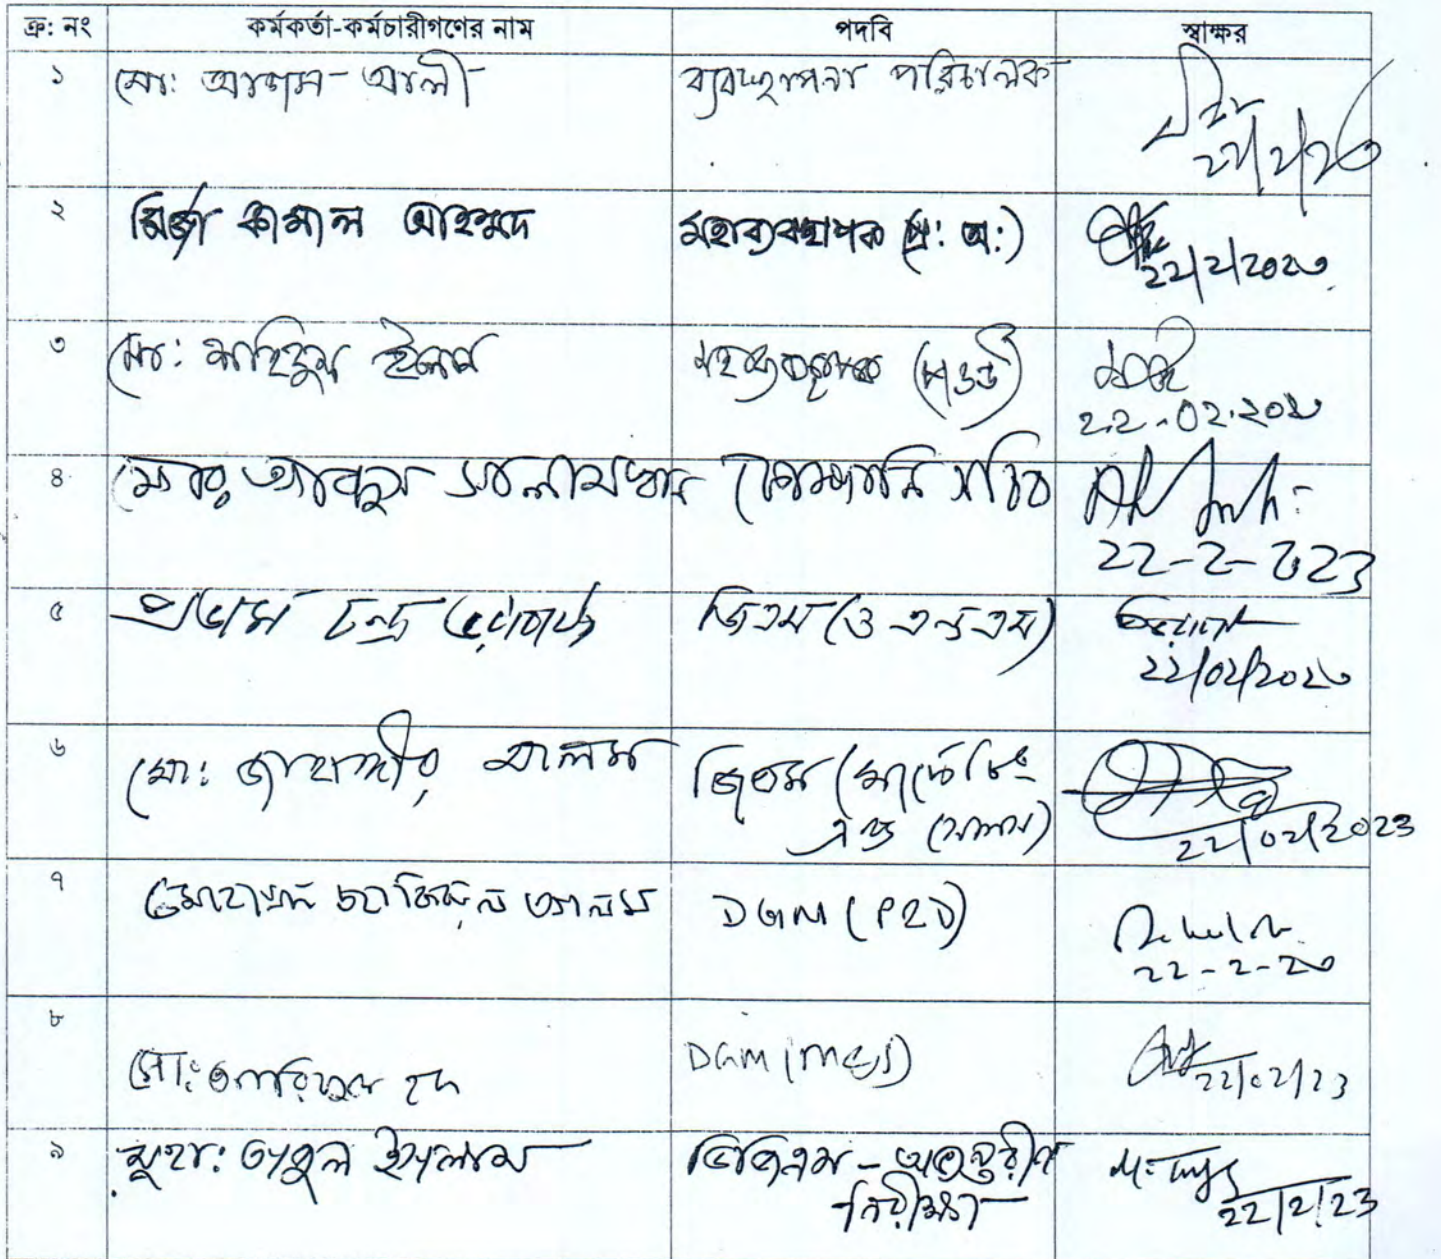 ক্র: নং কর্মকর্তা-কর্মচারীগণের নাম পদবি স্বাক্ষর
১ মো: আজম আলী ব্যবস্থাপনা পরিচালক
22/2/২৩
২ মির্জা কামাল আহম্মদ মহাব্যবস্থাপক (প্র: অ:)
22/2/202৩
৩ মো: মাহিদুল ইসলাম মহাব্যবস্থাপক (পিএন্ডডি)
22-02-202৩
৪ সালাম খান কোম্পানি সচিব
22-2-2023
৫ প্রভাস চন্দ্র জিএম (ও এন্ড এম)
22/02/202৩
৬ মো: জাহাঙ্গীর আলম জিএম (মার্কেটিং
এন্ড সেলস)
22/02/2023
৭ মোহাম্মদ আলম DGM (P&D)
22-2-2৩
৮ মো: আরিফুল হক DGM (M&S)
22/02/23
৯ মুহা: নুরুল ইসলাম ডিজিএম - অভ্যন্তরীণ
নিরীক্ষা
22/2/23